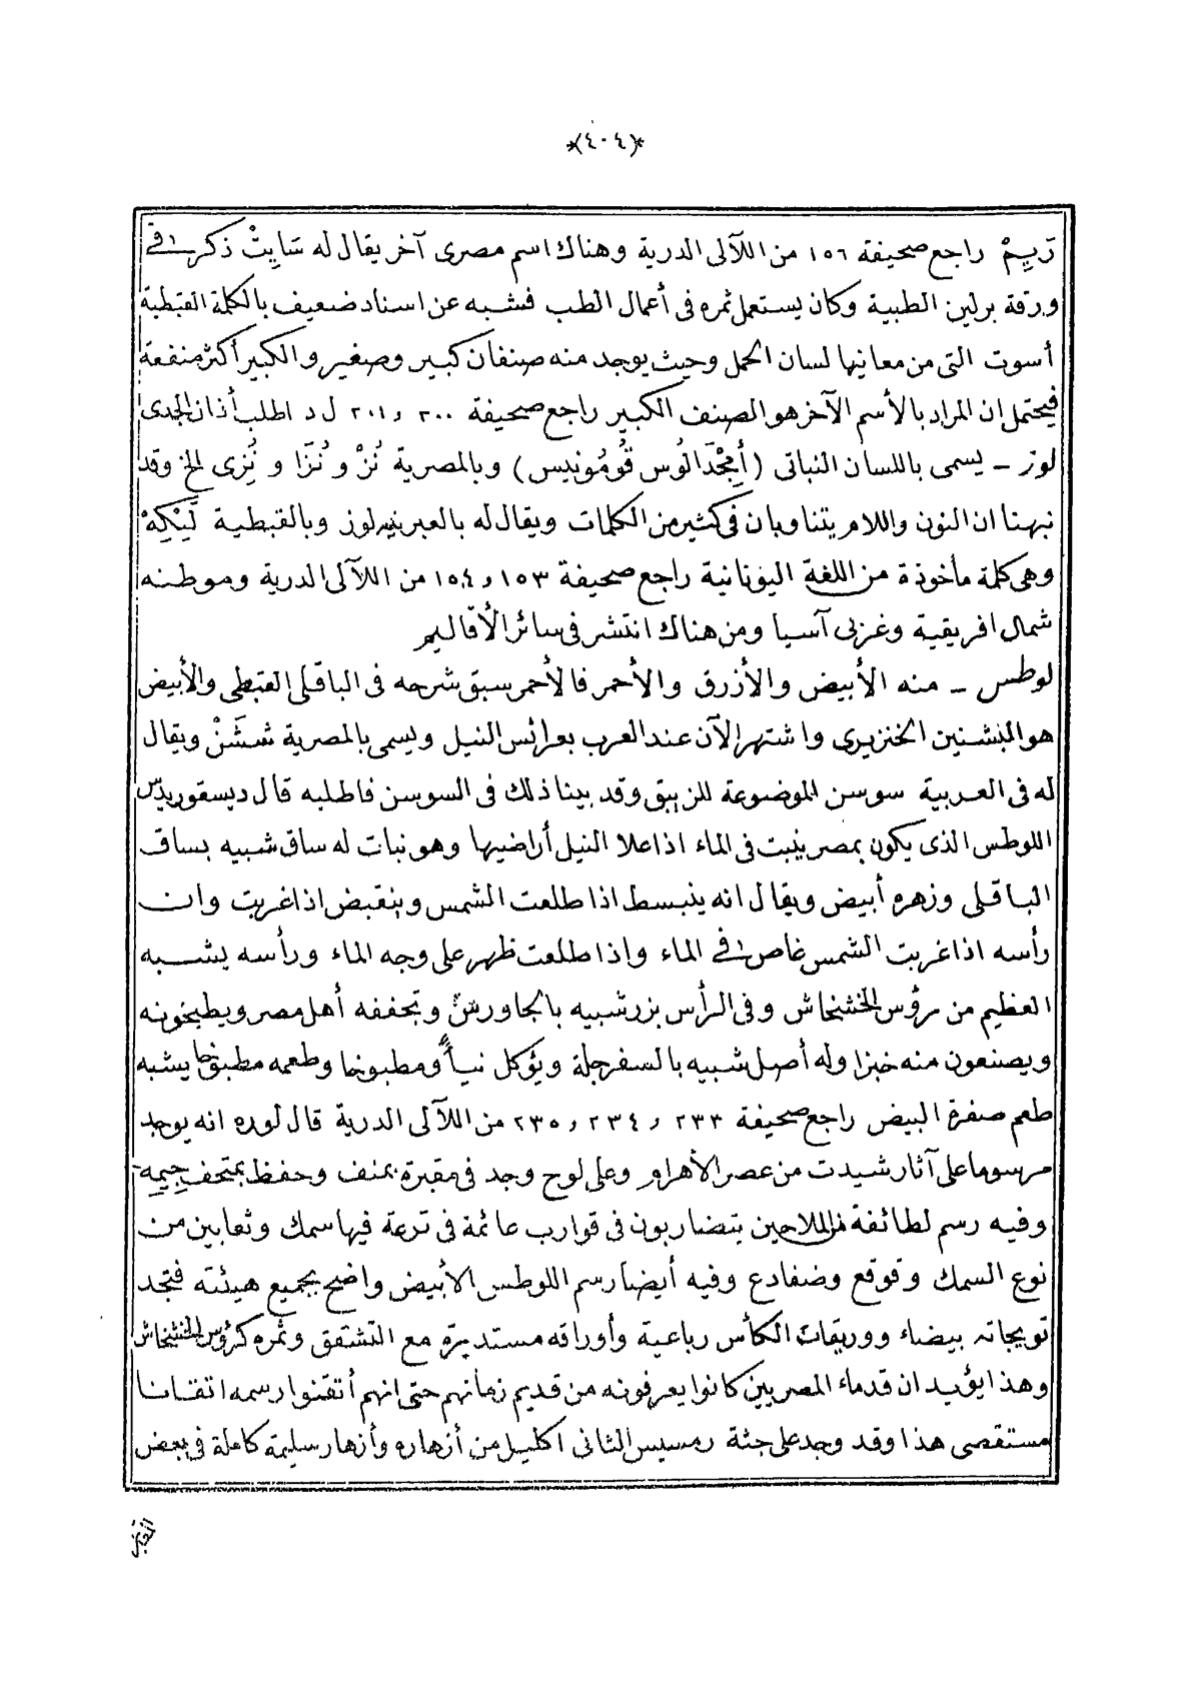 *(٤٠٤)*
رَبِيمْ راجع صحيفة ١٥٦ من اللآلى الدرية وهناك اسم مصرى آخر يقال له سَايِتْ ذكر فى
ورقة برلين الطبية وكان يستعمل ثمره فى أعمال الطب فشبه عن اسناد ضعيف بالكلمة القبطية
أسوت التى من معانيها لسان الحمل وحيث يوجد منه صنفان كبير وصغير والكبير أكثر منفعة
فيحتمل ان المراد بالأسم الآخر هو الصنف الكبير راجع صحيفة ٣٠٠ و ٢٠١ ل د اطلب أذان الجدى
لوز ـ يسمى باللسان النباتى (أَمِجْدَالُوس قُومُونِيس) وبالمصرية نُزْ و نُزَا و نُزِى الخ وقد
نبهنا ان النون واللام يتناوبان فى كثير من الكلمات ويقال له بالعبرنيه لوز وبالقبطية لَيْكِهْ
وهى كلمة مأخوذة من اللغة اليونانية راجع صحيفة ١٥٣ و ١٥٤ من اللآلى الدرية وموطنه
شمال افريقية وغربى آسيا ومن هناك انتشر فى سائر الأقاليم
لوطس ـ منه الأبيض والأزرق والأحمر فالأحمر سبق شرحه فى الباقلى القبطى والأبيض
هو البشنين الخنزيرى واشتهر الآن عند العرب بعرائس النيل ويسمى بالمصرية شَشَنْ ويقال
له فى العربية سوسن الموضوعة للزنبق وقد بينا ذلك فى السوسن فاطلبه قال ديسقوريدس
اللوطس الذى يكون بمصر ينبت فى الماء اذا علا النيل أراضيها وهو نبات له ساق شبيه بساق
الباقلى وزهره أبيض ويقال انه ينبسط اذا طلعت الشمس وينقبض اذا غربت وان
رأسه اذا غربت الشمس غاص فى الماء واذا طلعت ظهر على وجه الماء ورأسه يشبه
العظيم من رؤس الخشخاش وفى الرأس بزر شبيه بالجاورش وتجففه أهل مصر ويطبخونه
ويصنعون منه خبزا وله أصل شبيه بالسفرجلة ويؤكل نيأ ومطبوخا وطعمه مطبوخا يشبه
طعم صفرة البيض راجع صحيفة ٢٣٣ و ٢٣٤ و ٢٣٥ من اللآلى الدرية قال لوره انه يوجد
مرسوما على آثار شيدت من عصر الأهرام وعلى لوح وجد فى مقبرة بمنف وحفظ بمتحف جيمه
وفيه رسم لطائفة من الملاحين يتضاربون فى قوارب عائمة فى ترعة فيها سمك وثعابين من
نوع السمك وقوقع وضفادع وفيه أيضا رسم اللوطس الأبيض واضح بجميع هيئته فتجد
تويجاته بيضاء ووريقات الكأس رباعية وأوراقه مستديرة مع التشتقق وثمره كرؤس الخشخاش
وهذا يؤيد ان قدماء المصريين كانوا يعرفونه من قديم زمانهم حتى انهم أتقنوا رسمه اتقانا
مستقصى هذا وقد وجد على جثة رمسيس الثانى اكليل من أزهاره وأزهار سليمة كاملة فى بعض